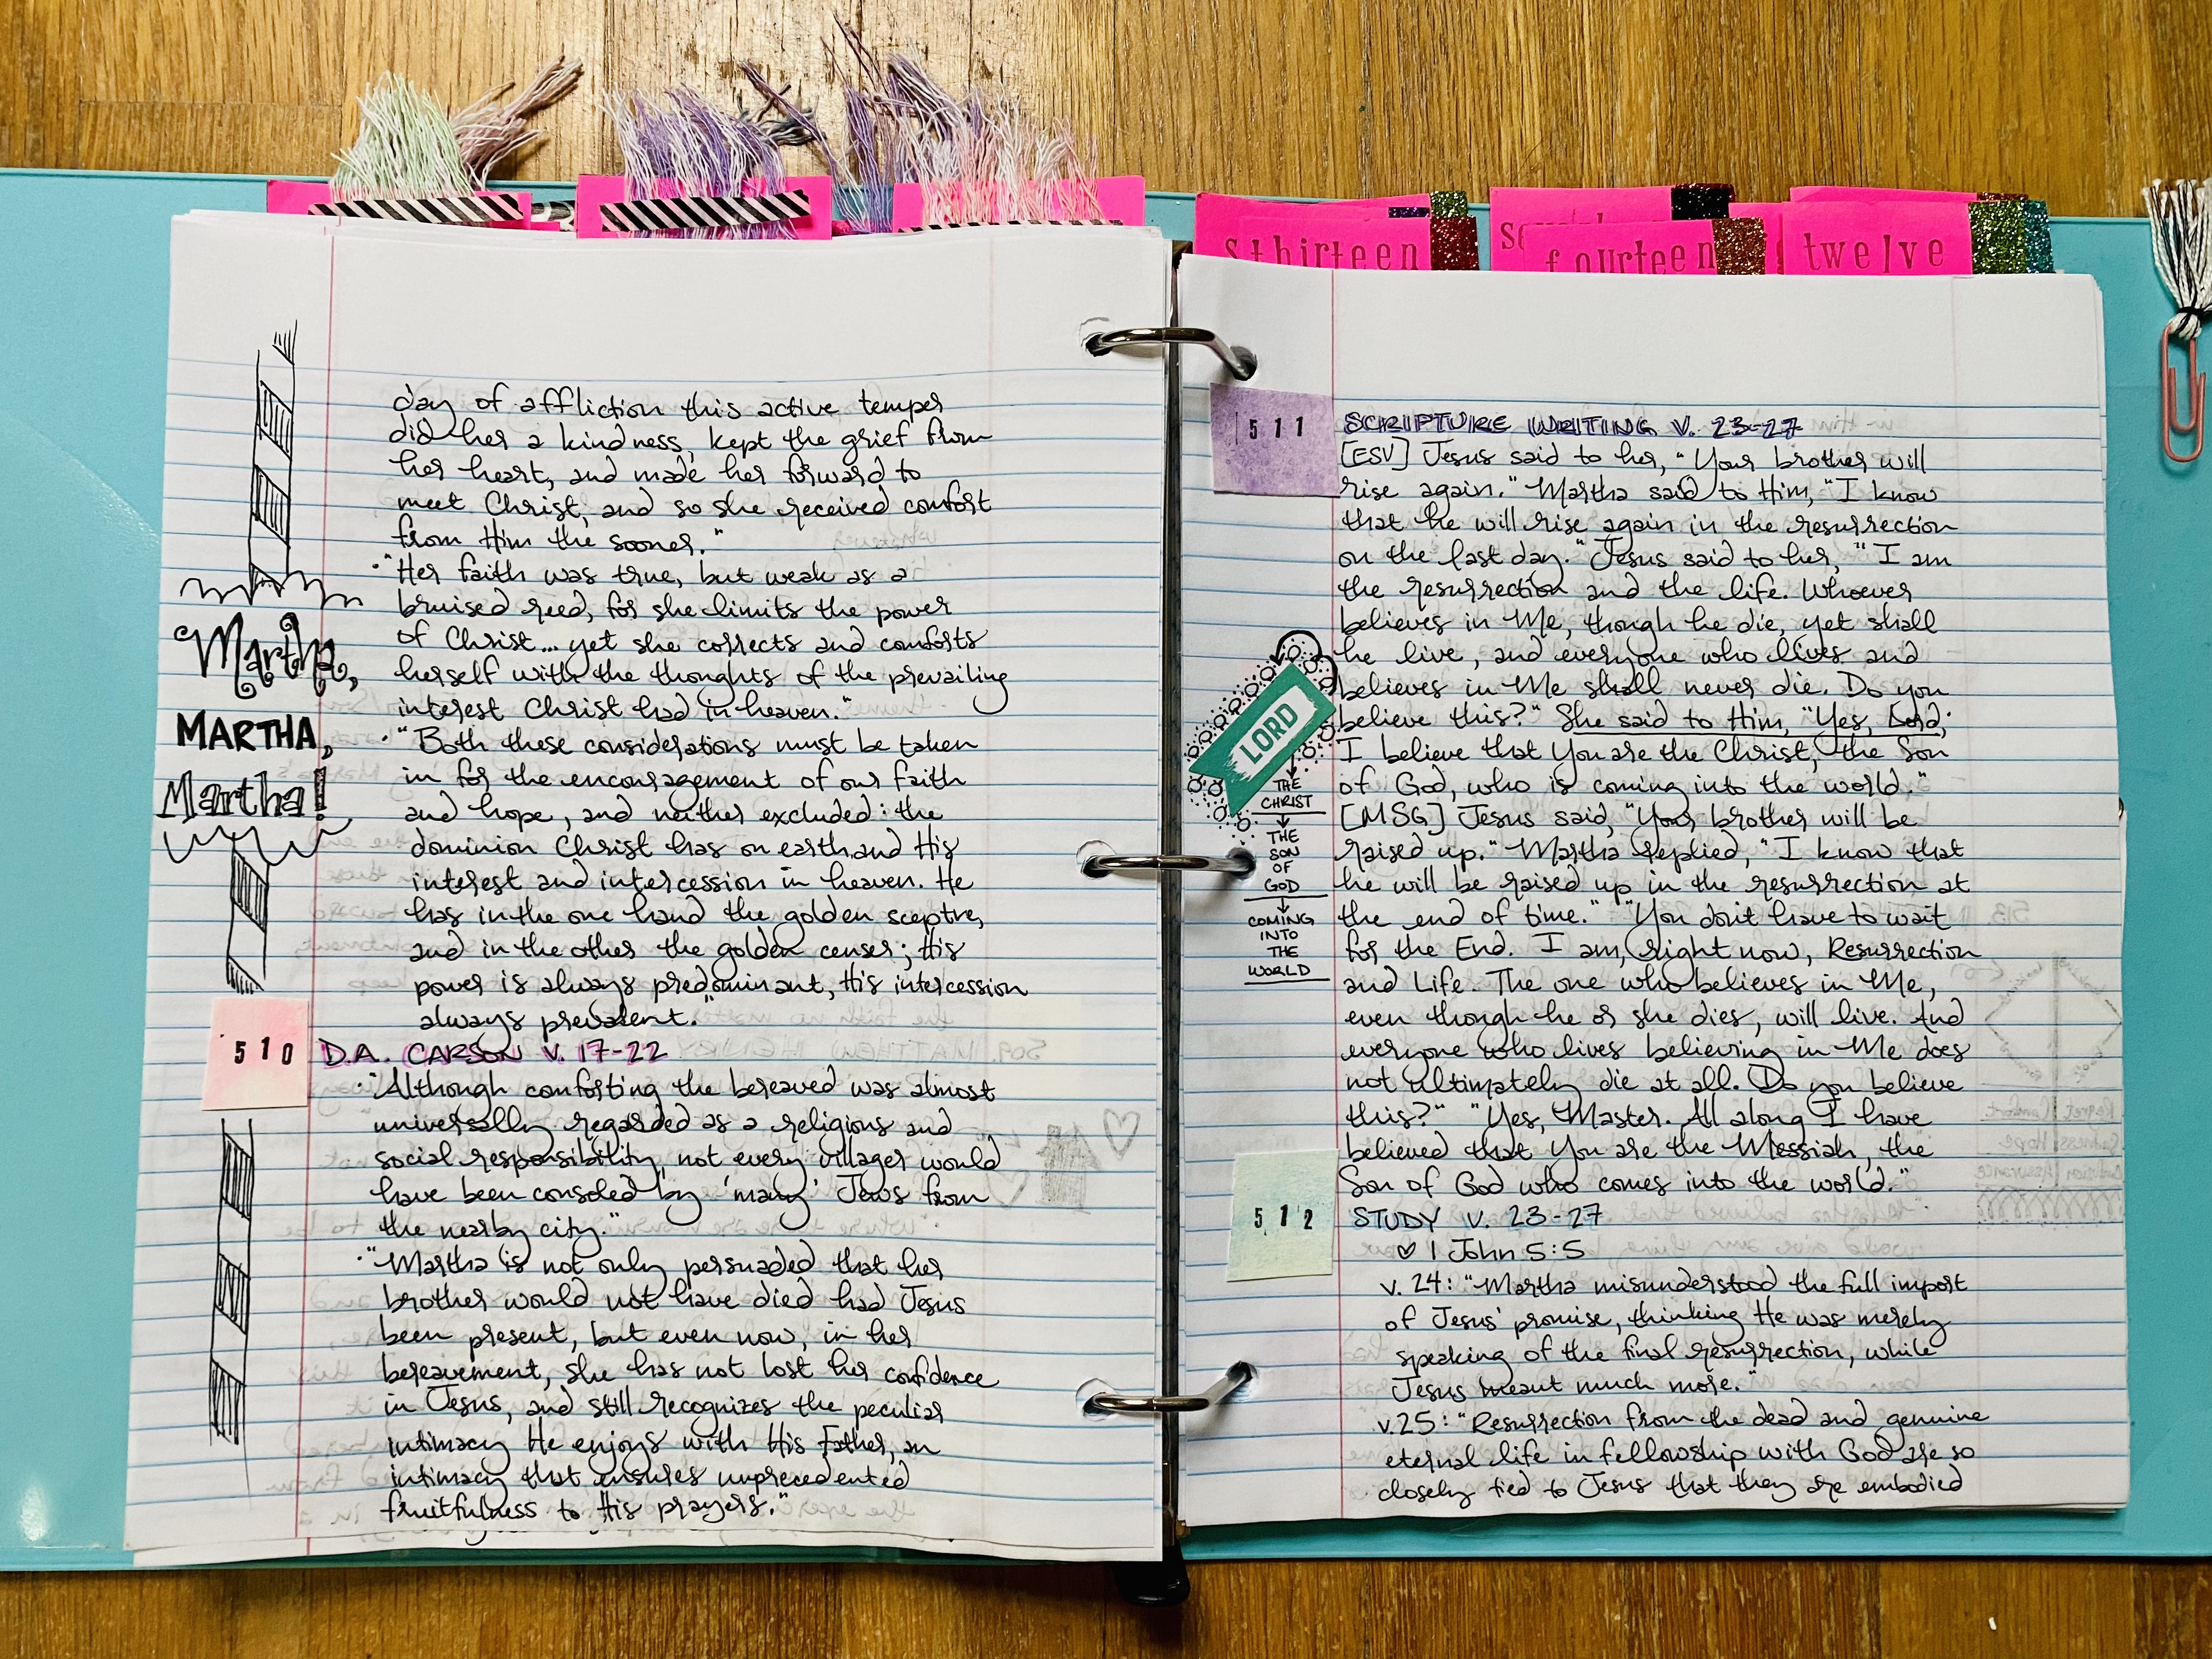 sthirteen
fourteen
twelve
day of affliction this active temper
did her a kindness, kept the grief from
her heart, and made her forward to
meet Christ, and so she received comfort
from Him the sooner."
· "Her faith was true, but weak as a
bruised reed, for she limits the power
of Christ... yet she corrects and comforts
herself with the thoughts of the prevailing
interest Christ had in heaven."
· "Both these considerations must be taken
in for the encouragement of our faith
and hope, and neither excluded: the
dominion Christ has on earth and His
interest and intercession in heaven. He
has in the one hand the golden sceptre,
and in the other the golden censer; His
power is always predominant, His intercession
always prevalent."
Martha,
MARTHA,
Martha!
510 D.A. CARSON V. 17-22
· "Although comforting the bereaved was almost
universally regarded as a religious and
social responsibility, not every villager would
have been consoled by 'many' Jews from
the nearby city."
· "Martha is not only persuaded that her
brother would not have died had Jesus
been present, but even now, in her
bereavement, she has not lost her confidence
in Jesus, and still recognizes the peculiar
intimacy He enjoys with His Father, an
intimacy that ensures unprecedented
fruitfulness to His prayers."
511 SCRIPTURE WRITING V. 23-27
[ESV] Jesus said to her, "Your brother will
rise again." Martha said to Him, "I know
that he will rise again in the resurrection
on the last day." Jesus said to her, "I am
the resurrection and the life. Whoever
believes in Me, though he die, yet shall
he live, and everyone who lives and
believes in Me shall never die. Do you
believe this?" She said to Him, "Yes, Lord;
I believe that You are the Christ, the Son
of God, who is coming into the world."
[MSG] Jesus said, "Your brother will be
raised up." Martha replied, "I know that
he will be raised up in the resurrection at
the end of time." "You don't have to wait
for the End. I am, right now, Resurrection
and Life. The one who believes in Me,
even though he or she dies, will live. And
everyone who lives believing in Me does
not ultimately die at all. Do you believe
this?" "Yes, Master. All along I have
believed that You are the Messiah, the
Son of God who comes into the world."
LORD
THE
CHRIST
THE
SON
OF
GOD
COMING
INTO
THE
WORLD
512 STUDY V. 23-27
♡ 1 John 5:5
v. 24: "Martha misunderstood the full import
of Jesus' promise, thinking He was merely
speaking of the final resurrection, while
Jesus meant much more."
v. 25: "Resurrection from the dead and genuine
eternal life in fellowship with God are so
closely tied to Jesus that they are embodied